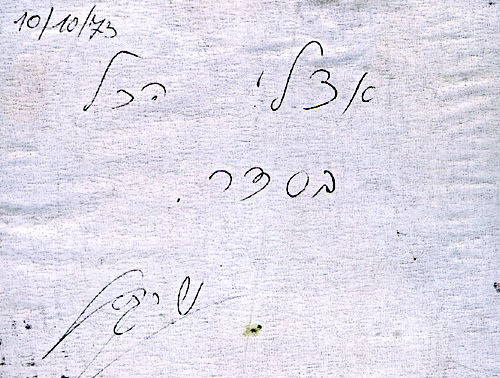 10/10/73
אצלי הכל
בסדר.